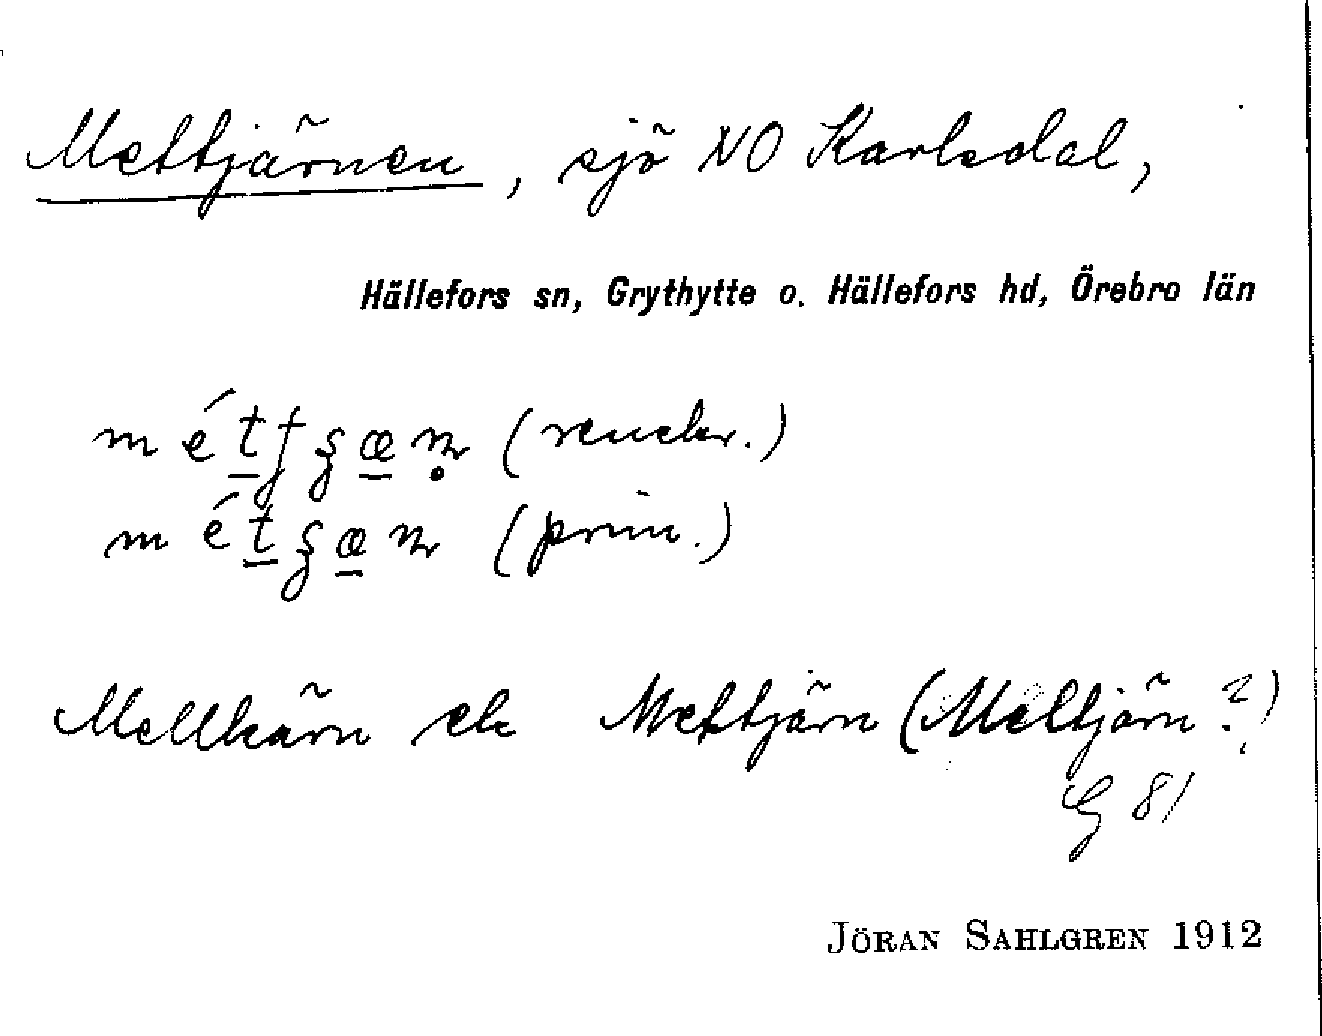 Mettjärnen, sjö NO Karlsdal,
Hällefors sn, Grythytte o. Hällefors hd, Örebro län
(prim.)
Mellkärn ek Mettjärn (Meltjärn?)
G 81
JÖRAN SAHLGREN 1912